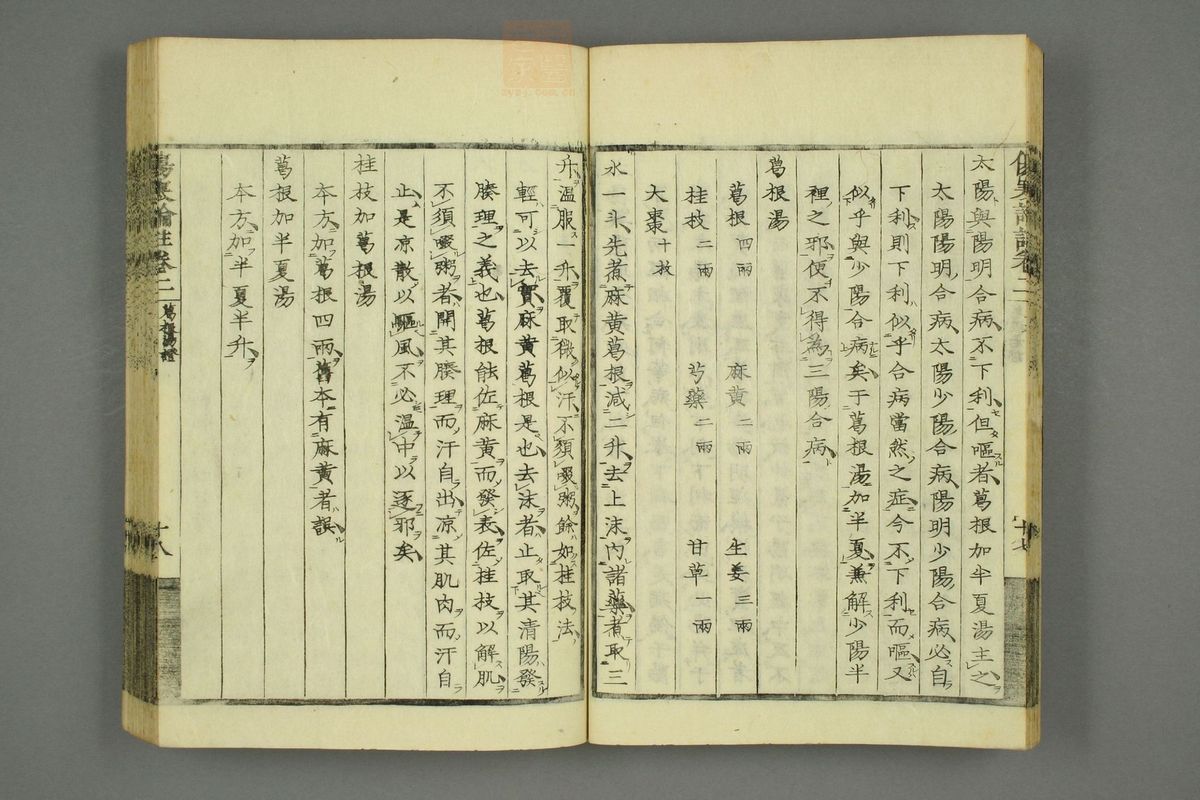 太陽與陽明合病不下利但嘔者葛根加半夏湯主之
太陽陽明合病太陽少陽合病陽明少陽合病必自
下利則下利似乎合病當然之症今不下利而嘔又
似乎與少陽合病矣于葛根湯加半夏兼解少陽半
裡之邪便不得為三陽合病
葛根湯
葛根四兩 麻黄二兩 生姜三兩
桂枝二兩 芍藥二兩 甘草一兩
大棗十枚
水一斗先煮麻黄葛根減二升去上沫內諸藥煮取三
升温服一升覆取微似汗不須啜粥餘如桂枝法
輕可以去實麻黄葛根是也去沫者止取其清陽發
腠理之義也葛根能佐麻黄而發表佐桂枝以解肌
不須啜粥者開其腠理而汗自出凉其肌肉而汗自
止是凉散以驅風不必温中以逐邪矣
桂枝加葛根湯
本方加葛根四兩舊本有麻黄者誤
葛根加半夏湯
本方加半夏半升
傷寒論註卷二 葛根湯證
十八
十七